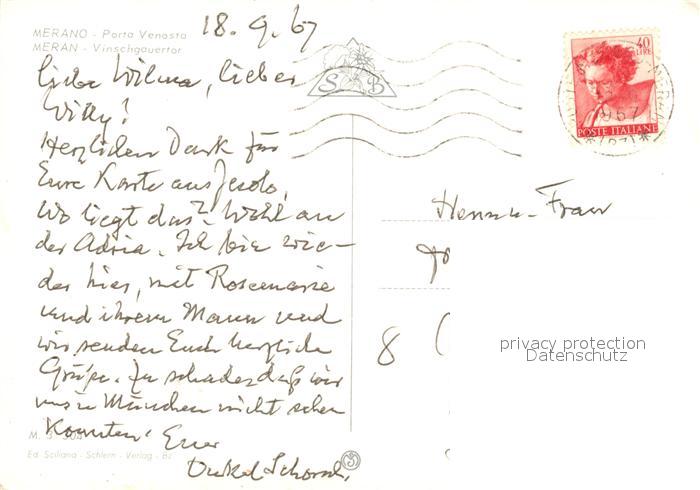 MERANO - Porta Venosta
MERAN - Vinschgauertor
18.9.67
Liebe Wilma, lieber
Willy!
Herzlichen Dank für
Eure Karte aus Jesolo,
Wo liegt das? Wohl an
der Adria. Ich bin wie-
der hier, mit Rosemarie
und ihrem Mann und
wir senden Euch herzliche
Grüße. Zu schade, daß wir
uns in München nicht sehen
konnten! Euer
Onkel Schorsch.
M. S. 304
Ed. Sciliana - Schlern - Verlag - Bz
S D
40
LIRE
POSTE ITALIANE
Herrn u. Frau
8
privacy protection
Datenschutz